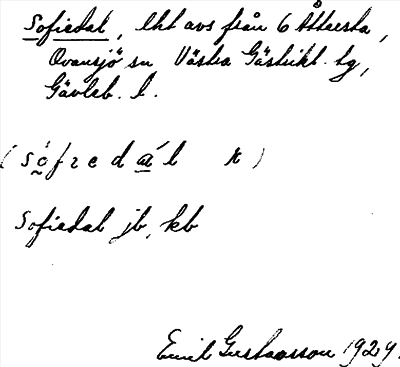 Sofiedal, lht avs från 6 Åttersta,
Ovansjö sn Västra Gästrikl. tg,
Gävleb. l.
(sófɩedál r)
Sofiedal jb, kb
Emil Gustavsson 1929.